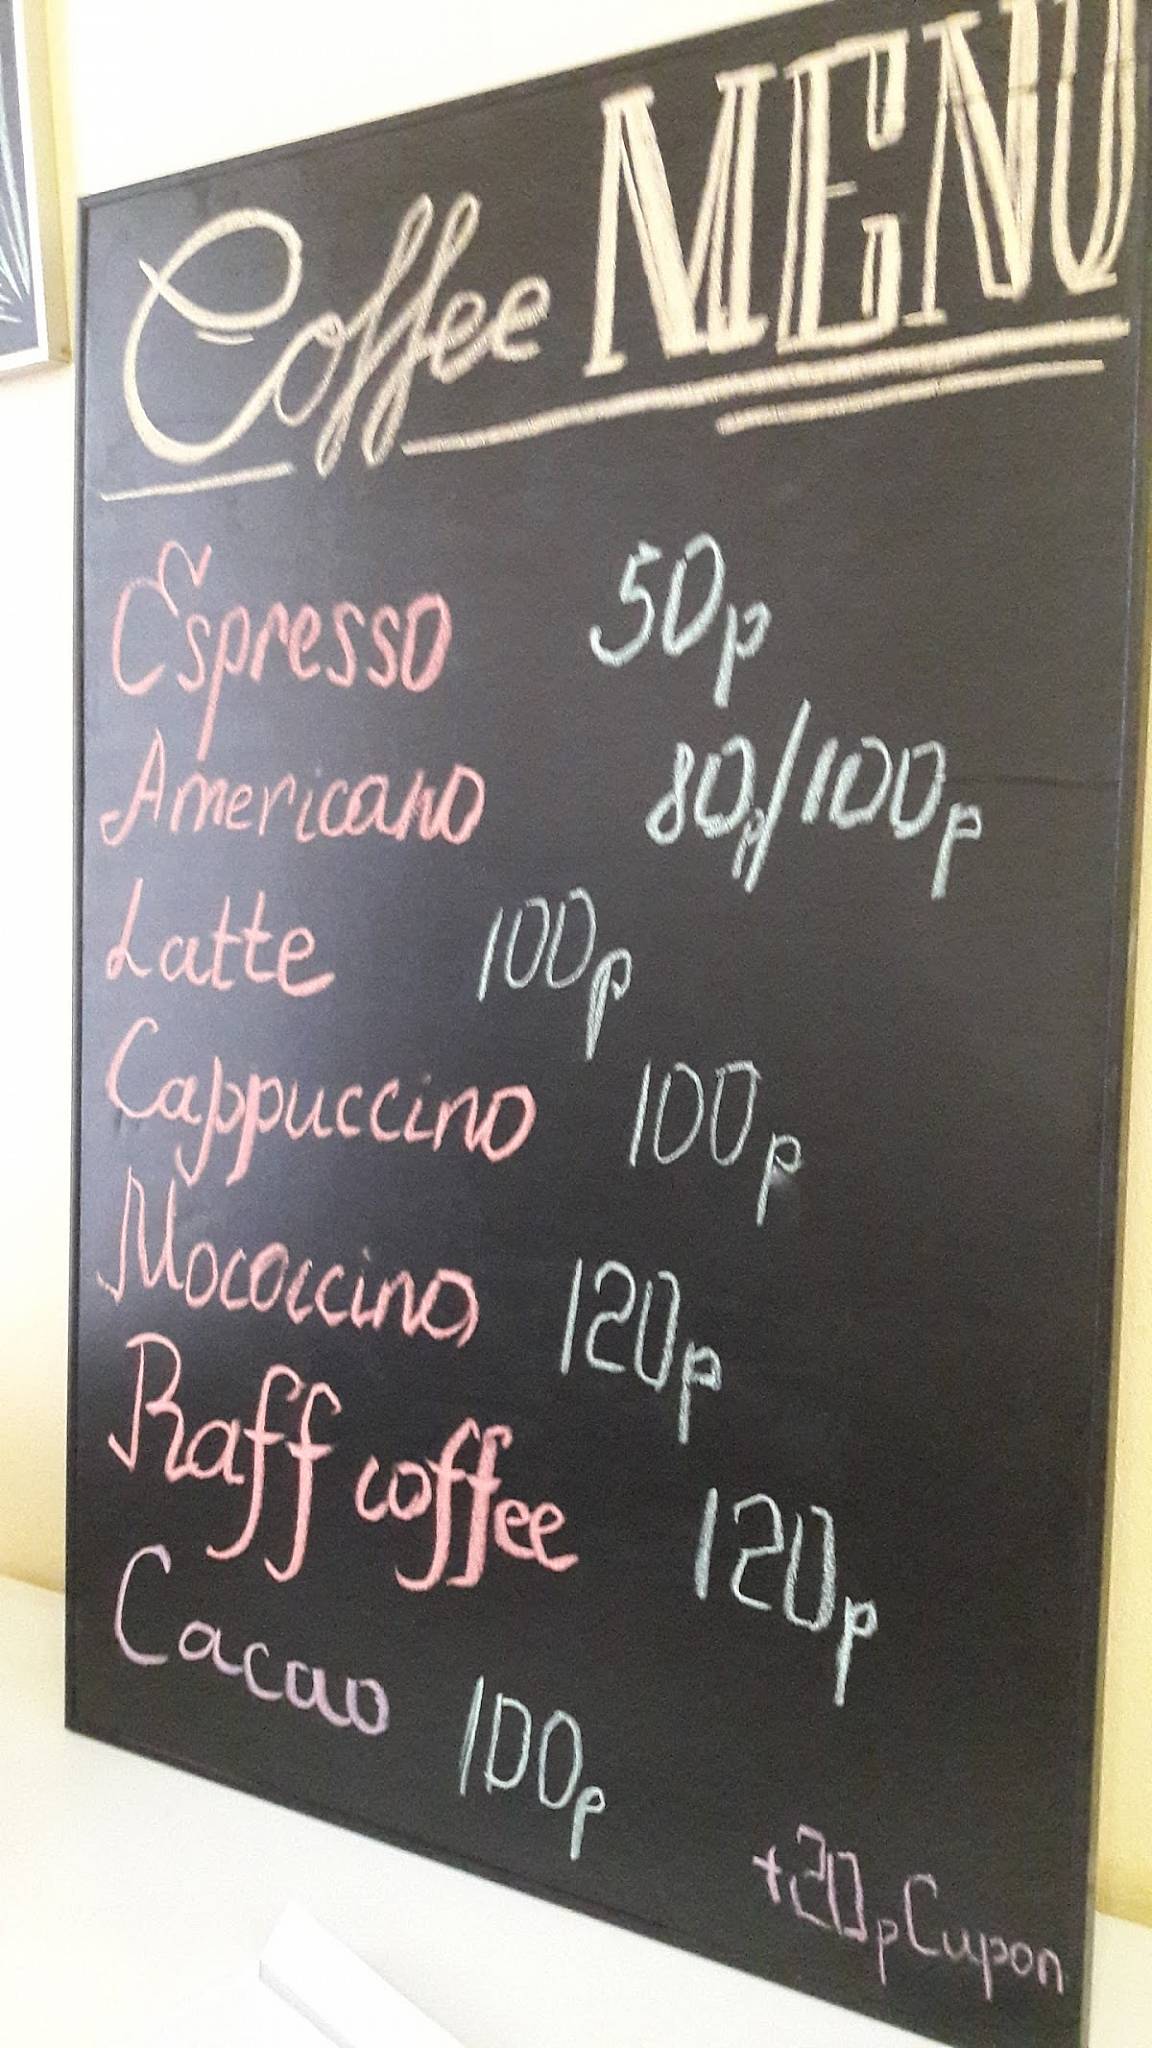 Coffee MENU
Espresso 50p
Americano 80p/100p
Latte 100p
Cappuccino 100p
Mococcino 120p
Raff coffee 120p
Cacao 100p
+20p Cupon